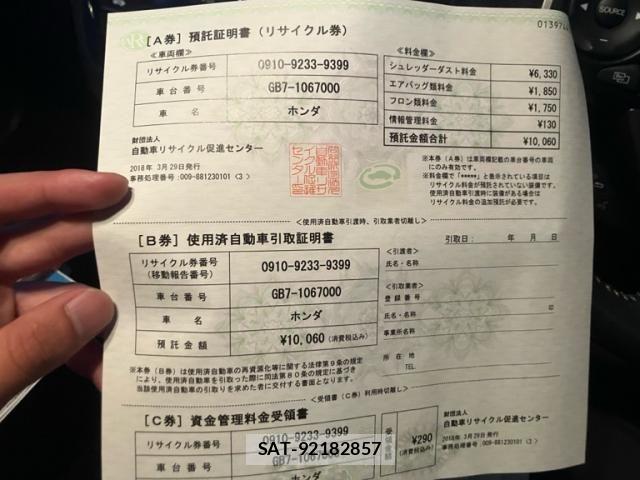 013974
[A券] 預託証明書（リサイクル券）
≪車両欄≫
リサイクル券番号 0910-9233-9399
車台番号 GB7-1067000
車名 ホンダ
≪料金欄≫
シュレッダーダスト料金 ¥6,330
エアバッグ類料金 ¥1,850
フロン類料金 ¥1,750
情報管理料金 ¥130
預託金額合計 ¥10,060
財団法人
自動車リサイクル促進センター
2018年 3月29日発行
事務処理番号:009-881230101〈3〉
※本券（A券）は車両欄記載の車台番号の車両
にのみ有効です。
※料金欄で「*****」と表示されている項目は
リサイクル料金が預託されていない装備です。
使用済自動車引渡時に装備がある場合は
リサイクル料金の追加預託が必要です。
＜使用済自動車引渡時、引取業者切離し＞
[B券] 使用済自動車引取証明書
引取日： 年 月 日
リサイクル券番号
(移動報告番号) 0910-9233-9399
車台番号 GB7-1067000
車名 ホンダ
預託金額 ¥10,060(消費税込み)
＜引渡者＞
氏名・名称
＜引取業者＞
登録番号
氏名・名称 印
事業所名称
所在地
TEL.
※本券（B券）は使用済自動車の再資源化等に関する法律第9条の規定
により、使用済自動車を引取った際に同法第80条の規定に基づき
当該使用済自動車の引取りを求めた者に交付する書面となります。
＜受領書（C券）利用時切離し＞
[C券] 資金管理料金受領書
リサイクル券番号 0910-9233-9399
車台番号 GB7-1067000
ホンダ
受領金額 ¥290
(消費税込み)
財団法人
自動車リサイクル促進センター
2018年 3月29日発行
SAT-92182857
SOURCE